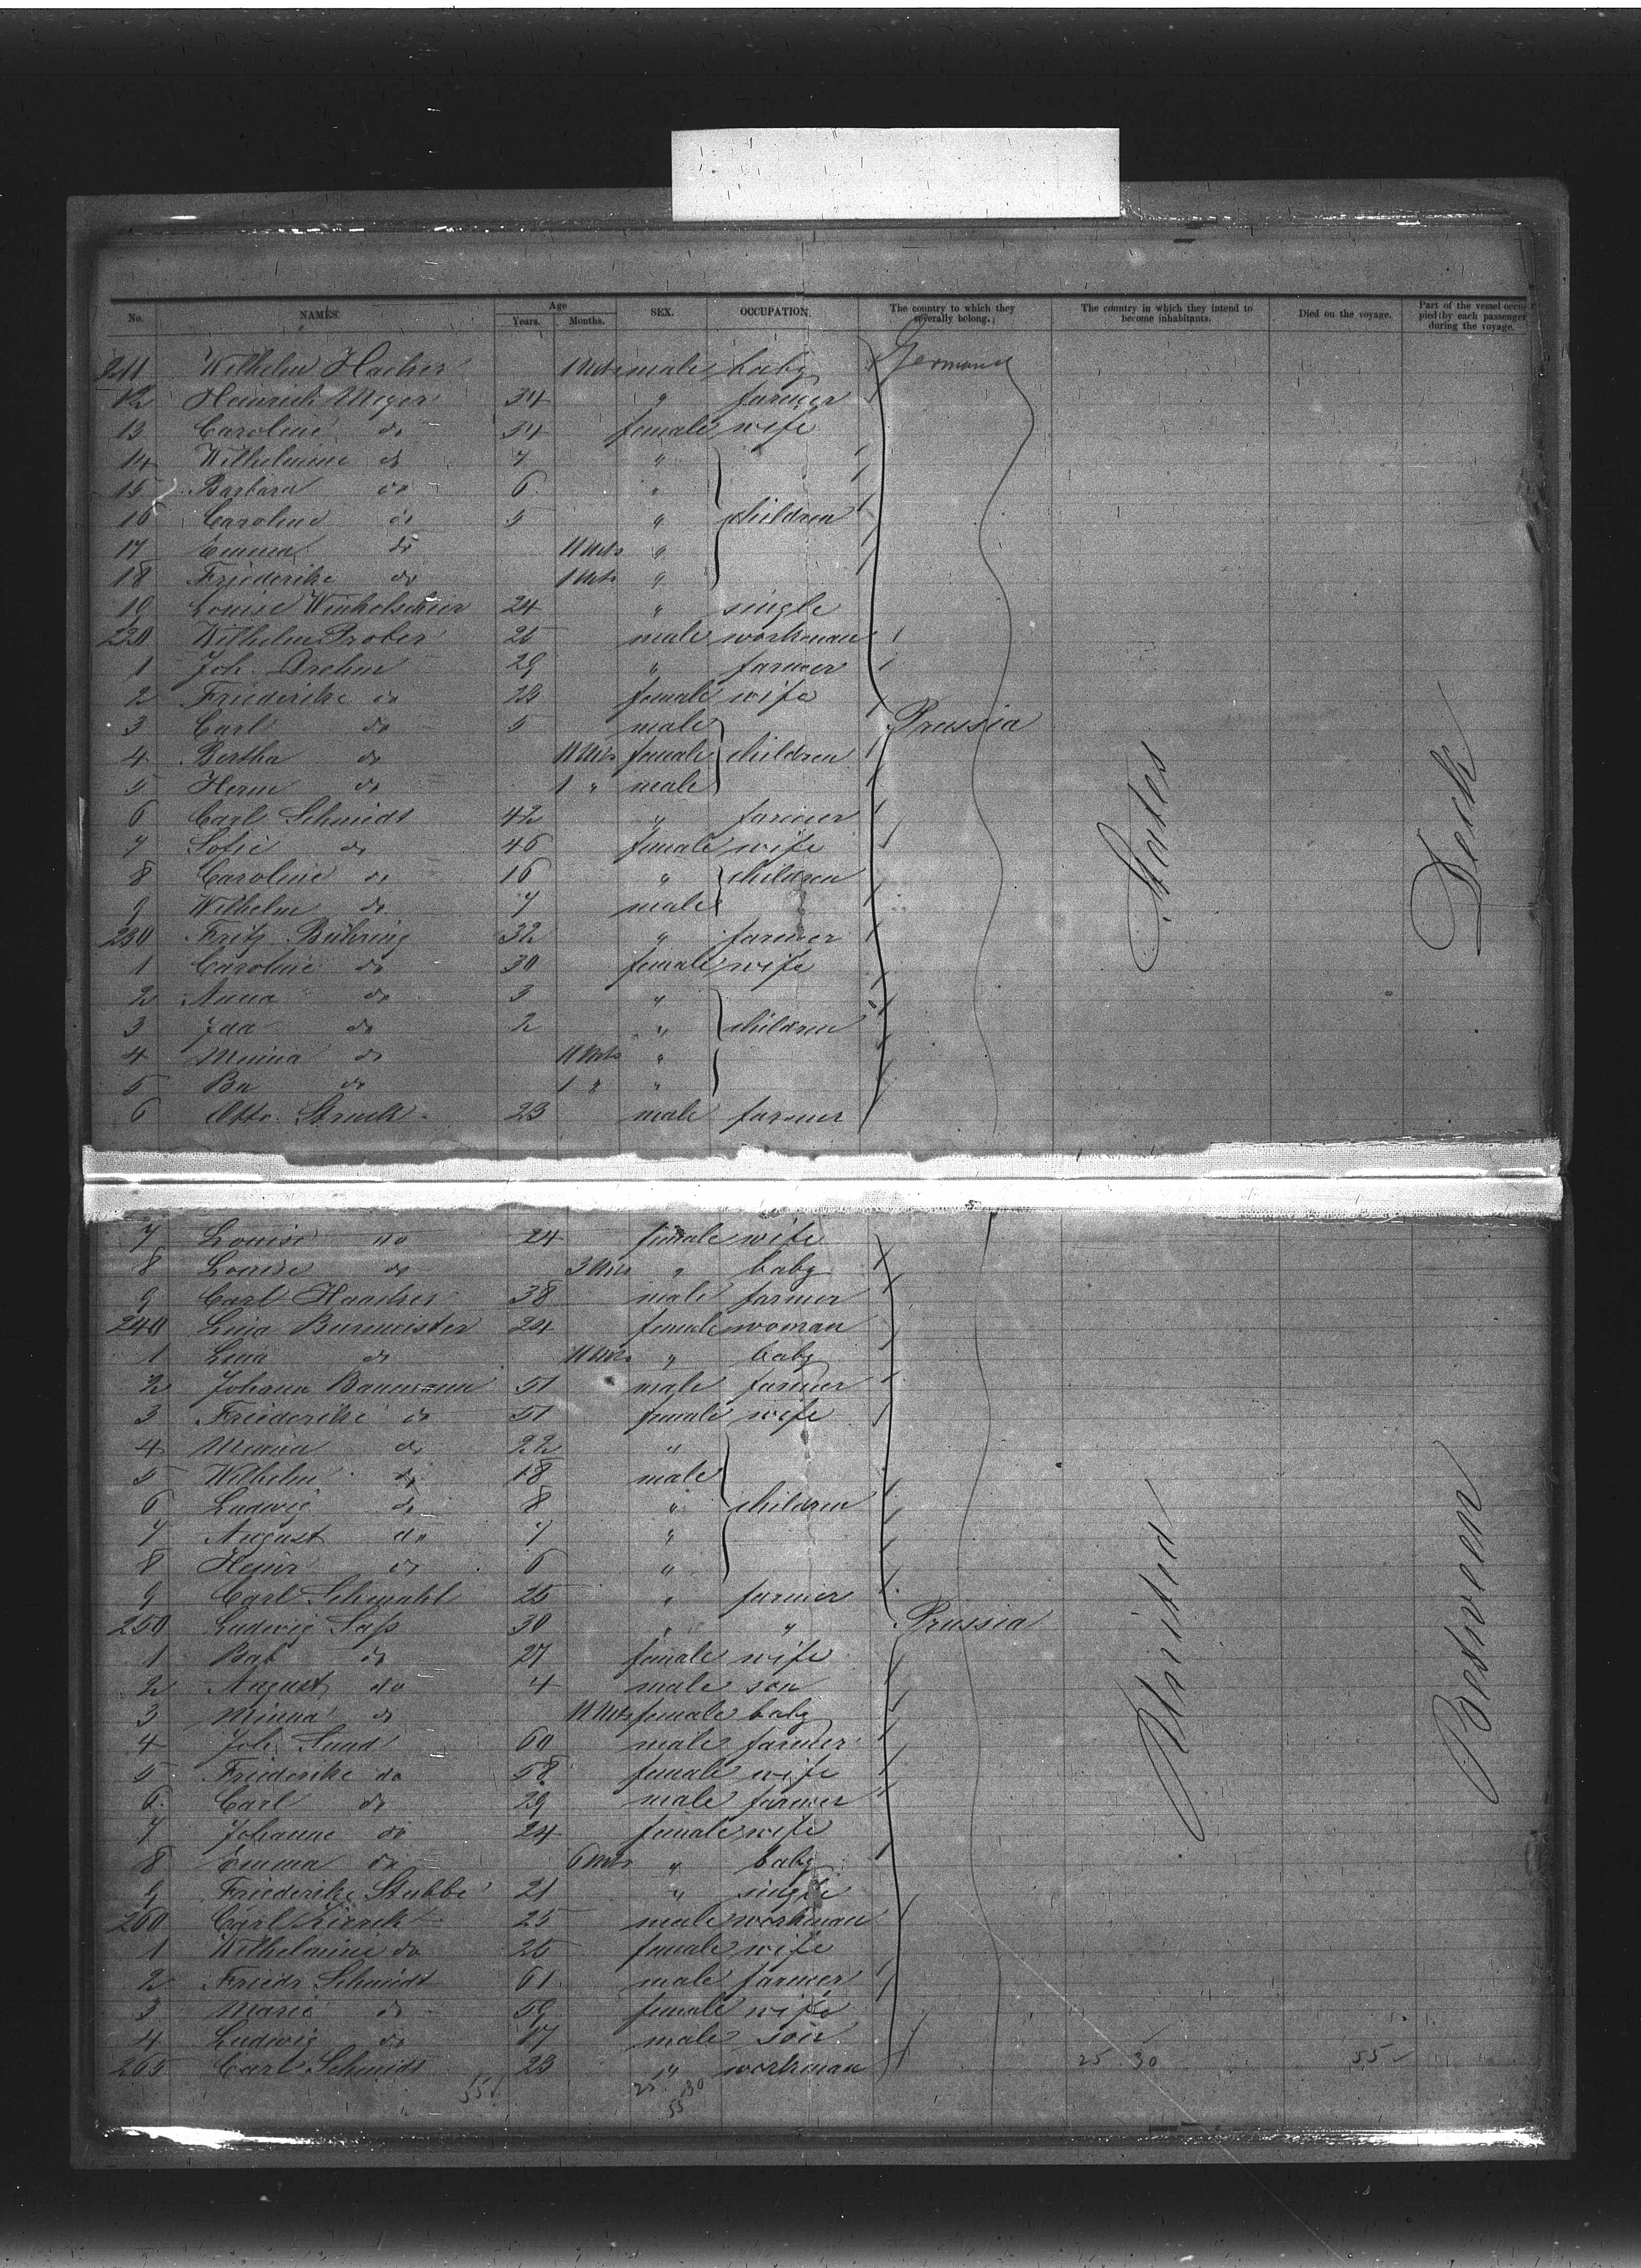 No. NAMES. Age Years. Months. SEX. OCCUPATION. The country to which they severally belong. The country in which they intend to become inhabitants. Died on the voyage. Part of the vessel occupied by each passenger during the voyage.
211 Wilhelm Hacker 1 Mts male baby Germany
12 Heinrich Meyer 34 " farmer
13 Caroline do 34 female wife
14 Wilhelmine do 7 "
15 Barbara do 6 "
16 Caroline do 5 " children
17 Emma do 11 Mts "
18 Friederike do 1 Mts "
19 Louise 24 " single
220 Wilhelm Prober 25 male workman
1 Joh. Drehm 29 " farmer
2 Friederike do 28 female wife
3 Carl do 5 male Prussia
4 Bertha do 11 Mts female children
5 Herm do 1 " male
6 Carl Schmidt 42 " farmer
7 Sofie do 46 female wife
8 Caroline do 16 " children
9 Wilhelm do 7 male
230 Fritz Bühring 32 " farmer
1 Caroline do 30 female wife
2 Anna do 3 "
3 Ida do 2 " children
4 Minna do 11 Mts "
5 do 1 " "
6 Otto Struck 23 male farmer
7 Louise do 24 female wife
8 Louise do 3 Mts " baby
9 Carl Haacker 38 male farmer
240 Lina Burmeister 24 female woman
1 Lina do 11 Mts " baby
2 Johann Baumann 51 male farmer
3 Friederike do 51 female wife
4 Minna do 22 "
5 Wilhelm do 18 male
6 Ludwig do 8 " children
7 August do 7 "
8 Heinr do 6 "
9 Carl Schmahl 25 " farmer
250 Ludwig Saß 30 " " Prussia
1 Bab do 27 female wife
2 August do 4 male son
3 Minna do 11 Mts female baby
4 Joh. Sund 60 male farmer
5 Friederike do 58 female wife
6 Carl do 29 male farmer
7 Johanne do 24 female wife
8 Emma do 6 Mts " baby
9 Friederike Stubbe 21 " single
260 Carl Zierck 25 male workman
1 Wilhelmine do 25 female wife
2 Friedr Schmidt 61 male farmer
3 Marie do 59 female wife
4 Ludwig do 17 male son
265 Carl Schmidt 23 " workman 25 30 55
55 25 30
55
United States
Between Deck